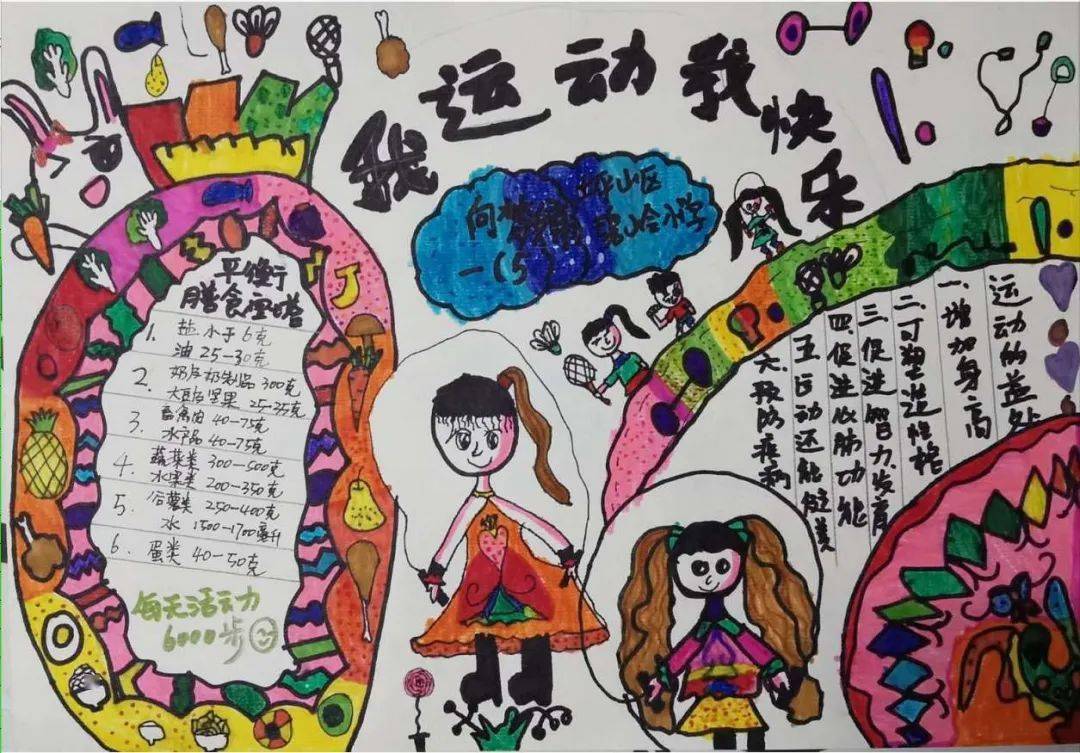 我运动我快乐
一（5）
平衡
膳食
1. 盐 小于6克
油 25-30克
2. 奶及奶制品 300克
大豆及坚果 25-35克
3. 畜禽肉 40-75克
水产品 40-75克
4. 蔬菜类 300-500克
水果类 200-350克
5. 谷薯类 250-400克
水 1500-1700毫升
6. 蛋类 40-50克
每天活动
6000步
运动的益处
一.增加身高
二.可塑造性格
三.促进智力发育
四.促进心肺功能
五.运动还能健美
六.预防疾病